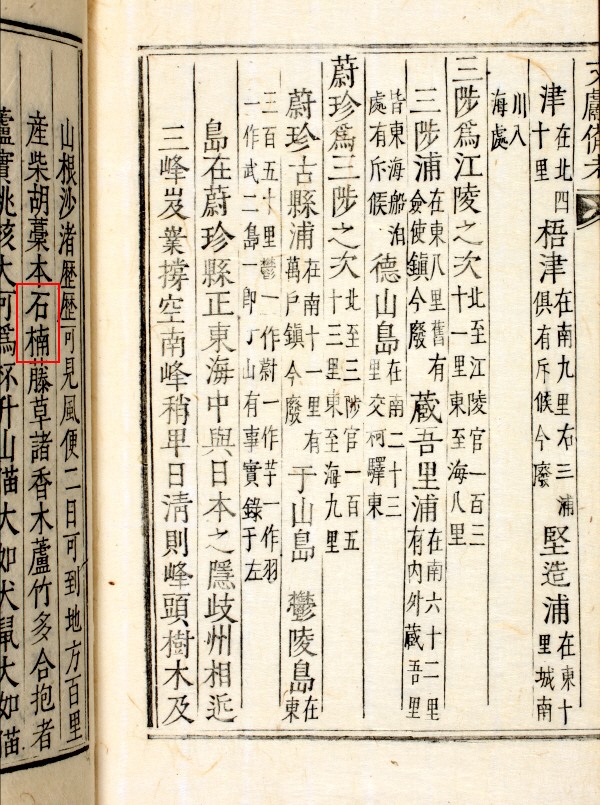 文獻備考
津在北四十里梧津在南九里右三浦俱有斥候今廢堅造浦在東十里城南
川入海處
三陟爲江陵之次北至江陵官一百三十一里東至海八里
三陟浦在東八里舊有僉使鎭今廢藏吾里浦在南六十二里有內外藏吾里
皆東海船泊處有斥候德山島在南二十三里交柯驛東
蔚珍爲三陟之次北至三陟官一百五十三里東至海九里
蔚珍古縣浦在南十一里有萬戶鎭今廢于山島鬱陵島在東
三百五十里鬱一作蔚一作芋一作羽一作武二島一卽于山有事實錄于左
島在蔚珍縣正東海中與日本之隱歧州相近
三峰岌嶪撐空南峰稍卑日清則峰頭樹木及
山根沙渚歷歷可見風便二日可到地方百里
産柴胡藁本石楠藤草諸香木蘆竹多合抱者
蘆實桃核大可爲杯升山猫大如犬鼠大如猫